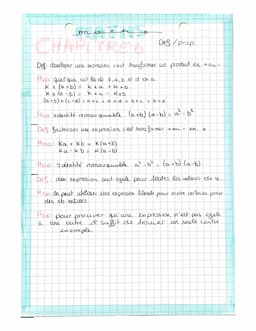 maths
CHAPITRE 6
Def / prop
Def: développer une expression c'est transformer un produit en + ou -
Prop: quelque soit les nb k, a, b, c, d on a:
K x (a+b) = k x a + k x b
K x (a-b) = k x a - k x b
(a+b) x (c+d) = a x c + a x d + b x c + b x d
Prop: identité remarquable (a+b) (a-b) = a² - b²
Def: factoriser une expression c'est transformer + ou - en x
Prop: Ka + Kb = K(a+b)
Ka - Kb = K(a-b)
Prop: Identité remarquable a² - b² = (a+b) (a-b)
Def: des expression sont égale pour toutes les valeurs de x.
Prop: On peut utiliser une expression littérale pour
des nb entiers
Prop: pour prouver qu'une expression n'est pas égale
à une autre il suffit de trouver un seul contre
exemple.